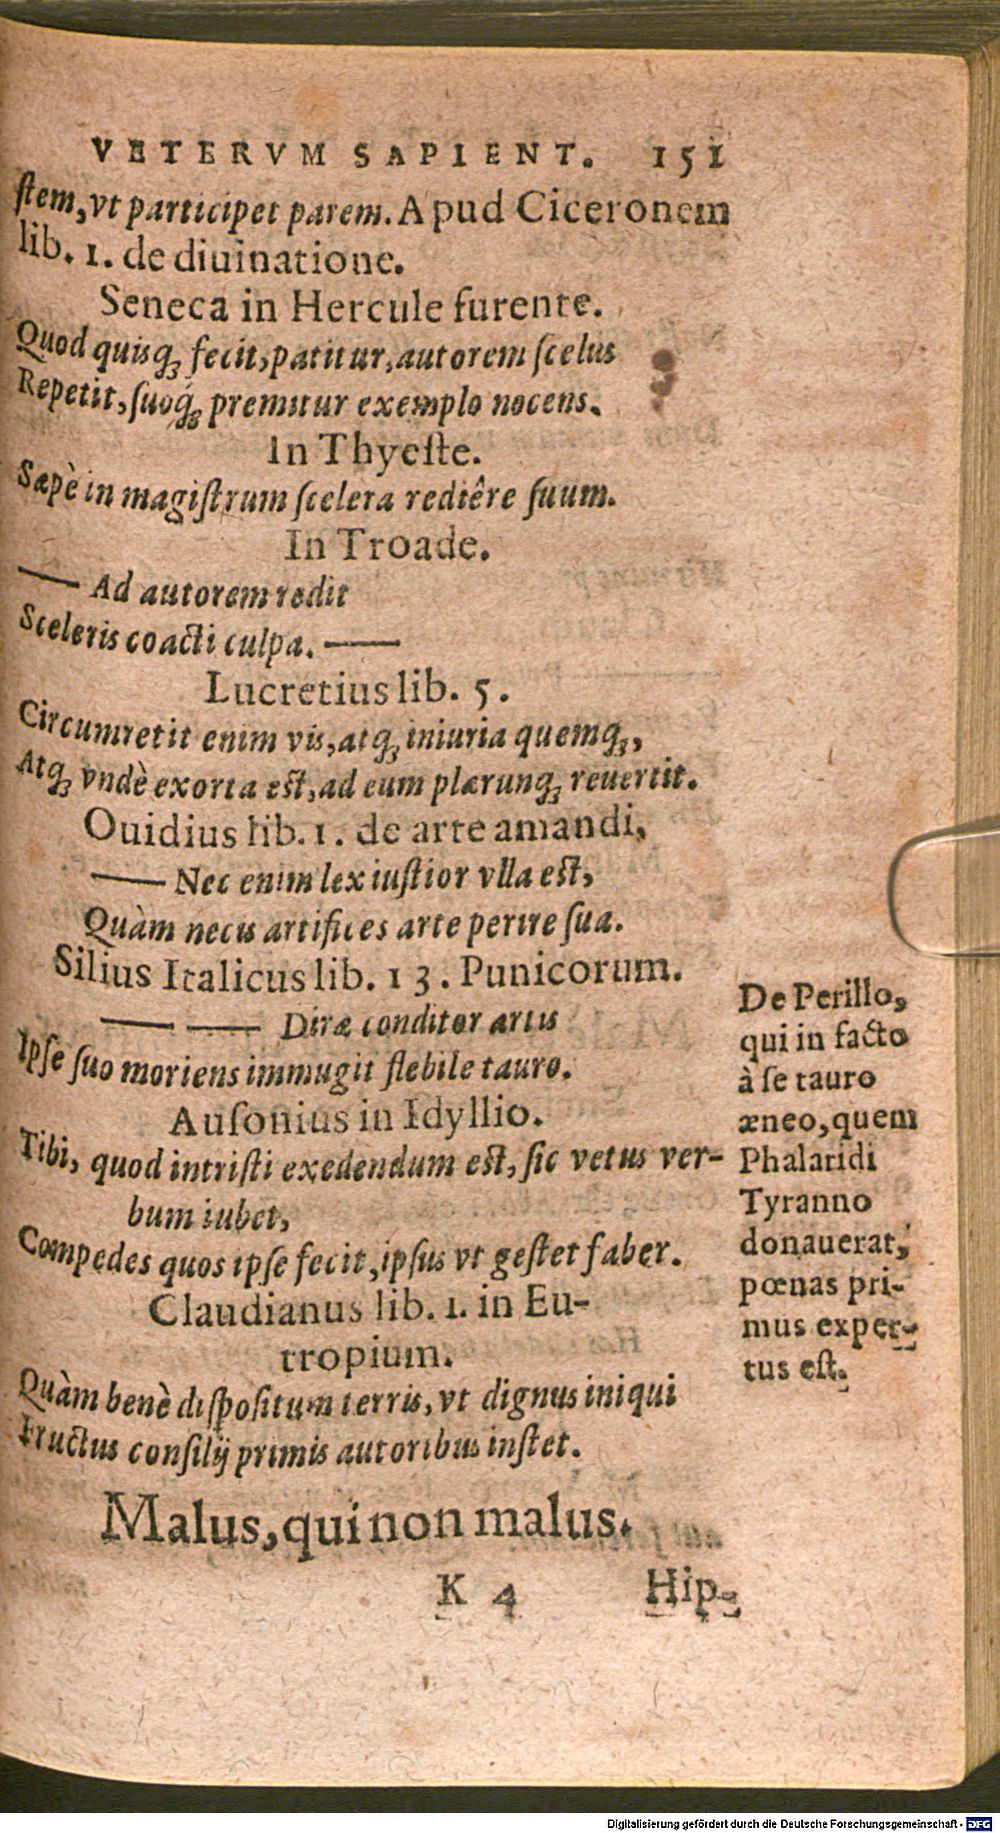 VETERVM SAPIENT. 151
ſtem, vt participet parem. Apud Ciceronem
lib. 1. de diuinatione.
Seneca in Hercule furente.
Quod quisq́ꝫ fecit, patitur, autorem ſcelus
Repetit, ſuoq́ꝫ premitur exemplo nocens.
In Thyeſte.
Sæpè in magiſtrum ſcelera rediêre ſuum.
In Troade.
—— Ad autorem redit
Sceleris coacti culpa. ——
Lucretius lib. 5.
Circumretit enim vis, atqꝫ iniuria quemqꝫ,
Atqꝫ vndè exorta est, ad eum plærunqꝫ reuertit.
Ouidius lib. 1. de arte amandi,
—— Nec enim lex iuſtior vlla est,
Quàm necis artifices arte perire ſua.
Silius Italicus lib. 13. Punicorum.
—— —— Diræ conditor artis
Ipſe ſuo moriens immugit flebile tauro.
De Perillo,
qui in facto
à ſe tauro
æneo, quem
Phalaridi
Tyranno
donauerat,
pœnas pri-
mus exper-
tus eſt.
Auſonius in Idyllio.
Tibi, quod intriſti exedendum est, ſic vetus ver-
bum iubet,
Compedes quos ipſe fecit, ipſus vt geſtet faber.
Claudianus lib. 1. in Eu-
tropium.
Quàm benè diſpoſitum terris, vt dignus iniqui
Fructus conſilij primis autoribus inſtet.
Malus, qui non malus.
K 4 Hip-
Digitalisierung gefördert durch die Deutsche Forschungsgemeinschaft - DFG